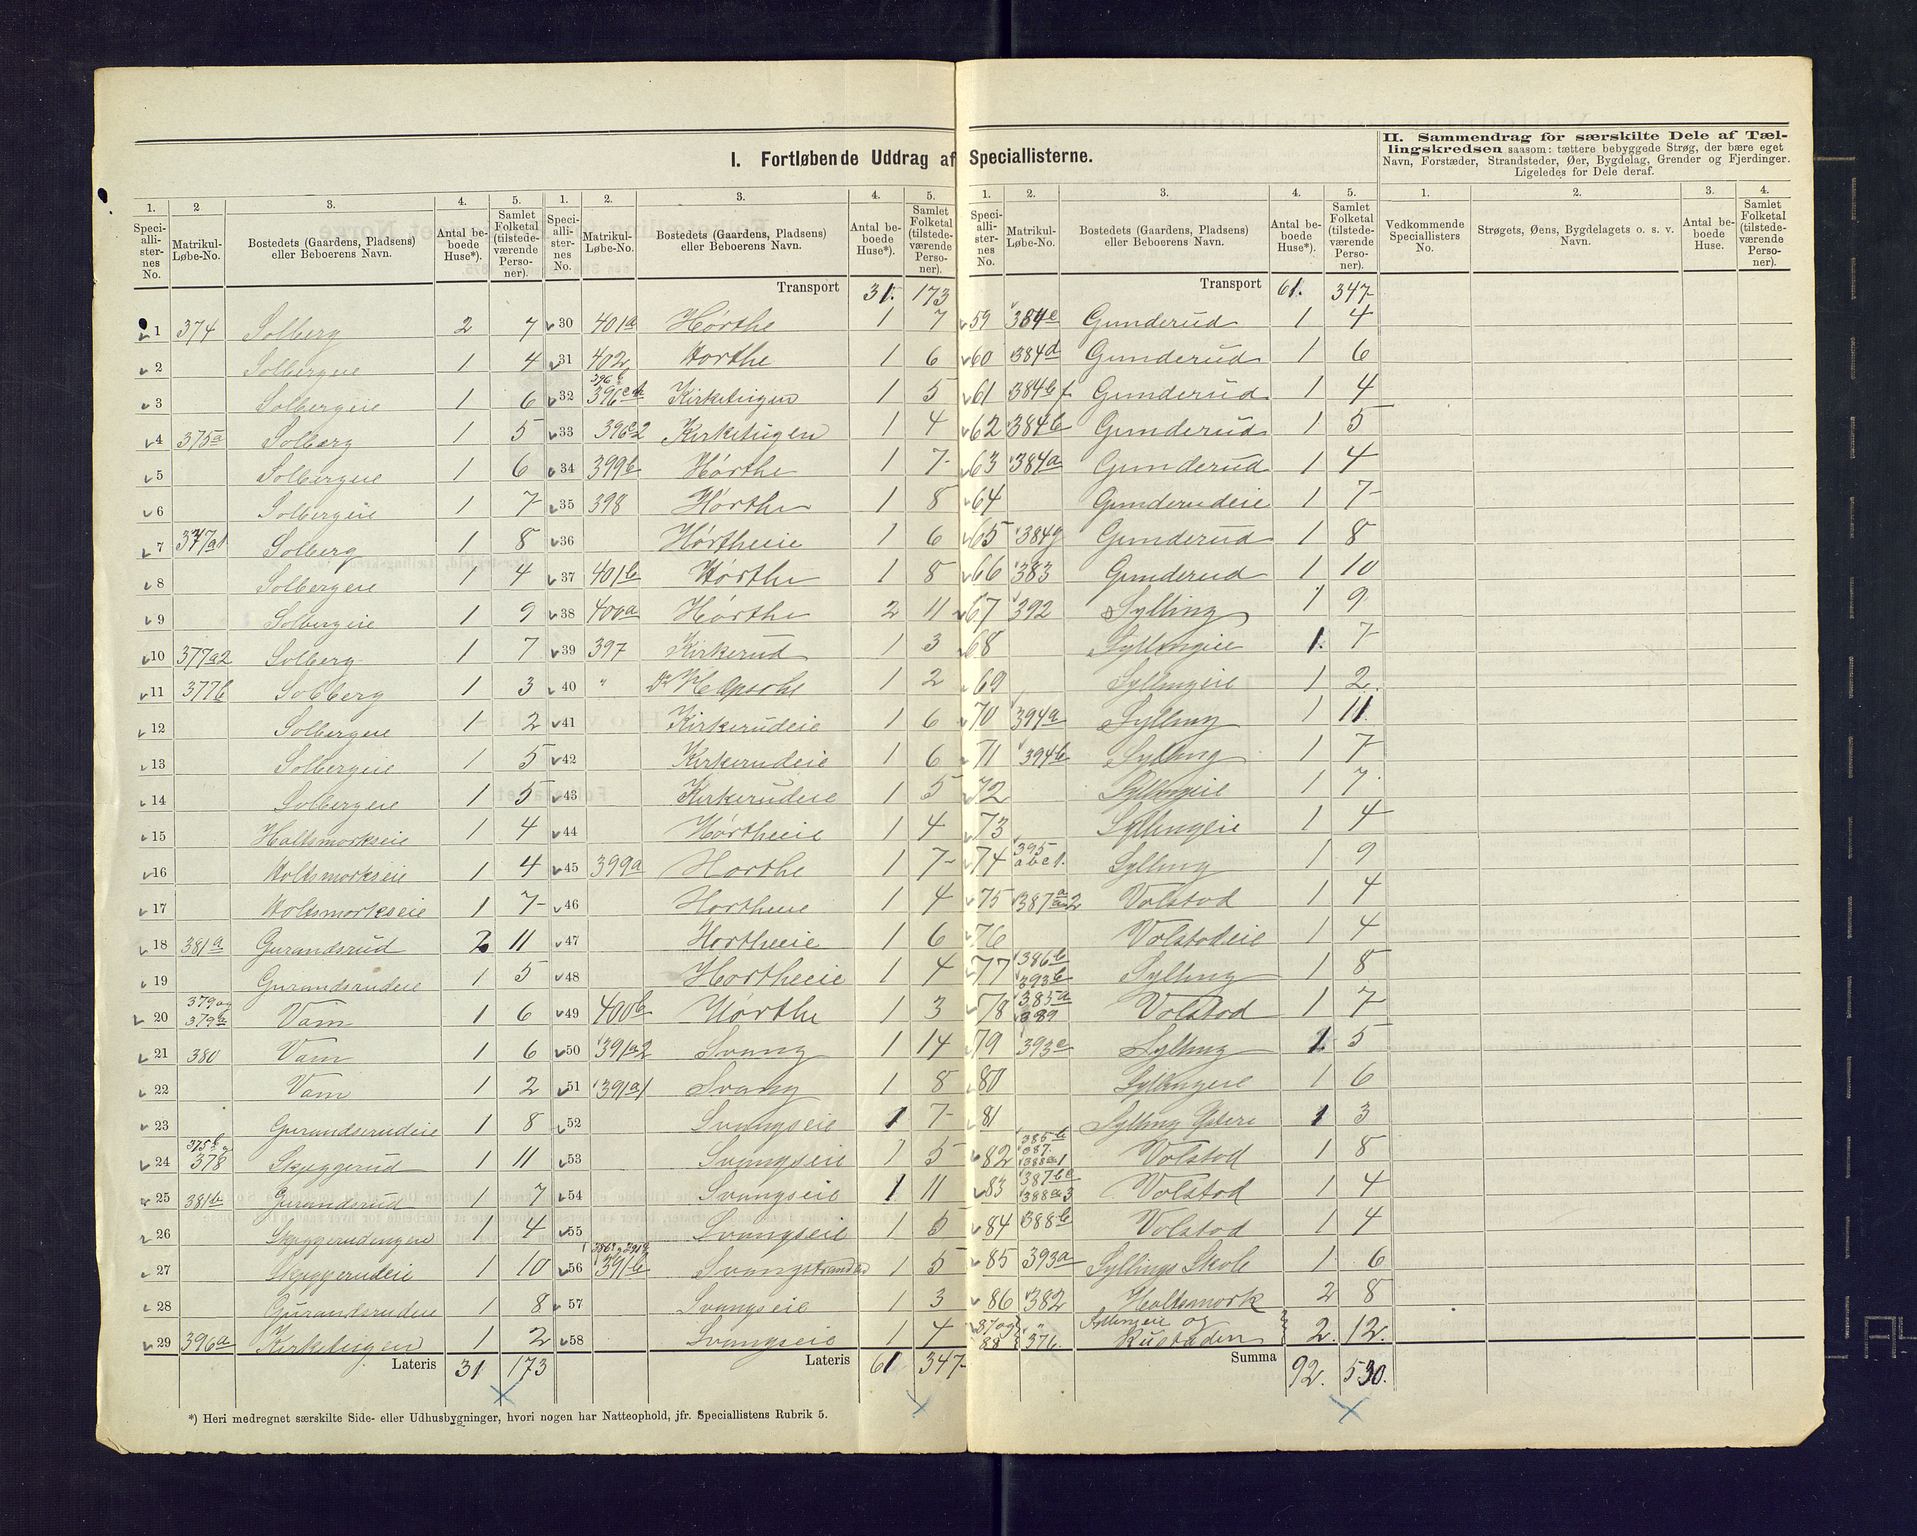 I. Fortløbende Uddrag af Speciallisterne.
II. Sammendrag for særskilte Dele af Tællingskredsen saasom: tættere bebyggede Strøg, der bære eget
Navn, Forstæder, Strandsteder, Øer, Bygdelag, Grender og Fjerdinger.
Ligeledes for Dele deraf.
1. 2 3. 4. 5.
Speciallisternes No. Matrikul-Løbe-No. Bostedets (Gaardens, Pladsens) eller Beboerens Navn. Antal beboede Huse*). Samlet Folketal (tilstedeværende Personer).
1 374 Solberg 2 7
2 Solbergeie 1 4
3 Solbergeie 1 6
4 375a Solberg 1 5
5 Solbergeie 1 6
6 Solbergeie 1 7
7 377a1 Solberg 1 8
8 Solbergeie 1 4
9 Solbergeie 1 9
10 377a2 Solberg 1 7
11 377b Solberg 1 3
12 Solbergeie 1 2
13 Solbergeie 1 5
14 Solbergeie 1 5
15 Holtsmorkseie 1 4
16 Holtsmorkseie 1 4
17 Holtsmorkseie 1 7
18 381a Gurandsrud 2 11
19 Gurandsrudeie 1 5
20 379 og 379a Vam 1 6
21 380 Vam 1 6
22 Vam 1 2
23 Gurandsrudeie 1 8
24 375b og 378 Skuggerud 1 11
25 381b Gurandsrud 1 7
26 Skuggerudengen 1 4
27 Skuggerudeie 1 10
28 Gurandsrudeie 1 8
29 396a Kirketeigen 1 2
Lateris 31 173
1. 2. 3. 4. 5.
Speciallisternes No. Matrikul-Løbe-No. Bostedets (Gaardens, Pladsens) eller Beboerens Navn. Antal beboede Huse*). Samlet Folketal (tilstedeværende Personer).
Transport 31. 173
30 401a Hørthe 1 7
31 402 Horthe 1 6
32 396b 396c1 Kirketeigen 1 5
33 396c2 Kirketeigen 1 4
34 399b Hørthe 1 7
35 398 Hørthe 1 8
36 Hørtheeie 1 6
37 401b Hørthe 1 8
38 400a Hørthe 2 11
39 397 Kirkerud 1 3
40 " 1 2
41 Kirkerudeie 1 6
42 Kirkerudeie 1 6
43 Kirkerudeie 1 5
44 Hørtheeie 1 4
45 399a Horthe 1 7
46 Hortheeie 1 4
47 Hortheeie 1 6
48 Hortheeie 1 4
49 400b Hørthe 1 3
50 391a2 Svang 1 14
51 391a1 Svang 1 8
52 Svangseie 1 7
53 Svangseie 1 5
54 Svangseie 1 11
55 Svangseie 1 5
56 391b Svangstranden 1 5
57 Svangseie 1 3
58 Svangseie 1 4
Lateris 61 347
1. 2. 3. 4. 5.
Speciallisternes No. Matrikul-Løbe-No. Bostedets (Gaardens, Pladsens) eller Beboerens Navn. Antal beboede Huse*). Samlet Folketal (tilstedeværende Personer).
Transport 61. 347
59 384e Gunderud 1 4
60 384d Gunderud 1 6
61 384b f Gunderud 1 4
62 384b Gunderud 1 5
63 384a Gunderud 1 4
64 Gunderudeie 1 7
65 384g Gunderud 1 8
66 383 Gunderud 1 10
67 392 Sylling 1 9
68 Syllingeie 1. 7
69 Syllingeie 1 2
70 394a Sylling 1 11
71 394b Sylling 1 7
72 Syllingeie 1 7
73 Syllingeie 1 4
74 395 abc1. Sylling 1 9
75 387a2 Volstod 1 4
76 Volstodeie 1 4
77 386b 393b Sylling 1 8
78 385a 389 Volstod 1 7
79 393c Sylling 1 5
80 Syllingeie 1 6
81 Sylling 1 3
82 385b 387 388a1 Volstod 1 8
83 387bc 388a3 Volstod 1 4
84 388b Volstod 1 4
85 393a Syllings Skole 1 6
86 382 Holtsmork 2 8
87 og 88 " 376. og Rustaden 2. 12.
Summa 92. 530.
1. 2. 3. 4.
Vedkommende Speciallisters No. Strøgets, Øens, Bygdelagets o. s. v. Navn. Antal beboede Huse. Samlet Folketal (tilstedeværende Personer).
*) Heri medregnet særskilte Side- eller Udhusbygninger, hvori nogen har Natteophold, jfr. Speciallistens Rubrik 5.